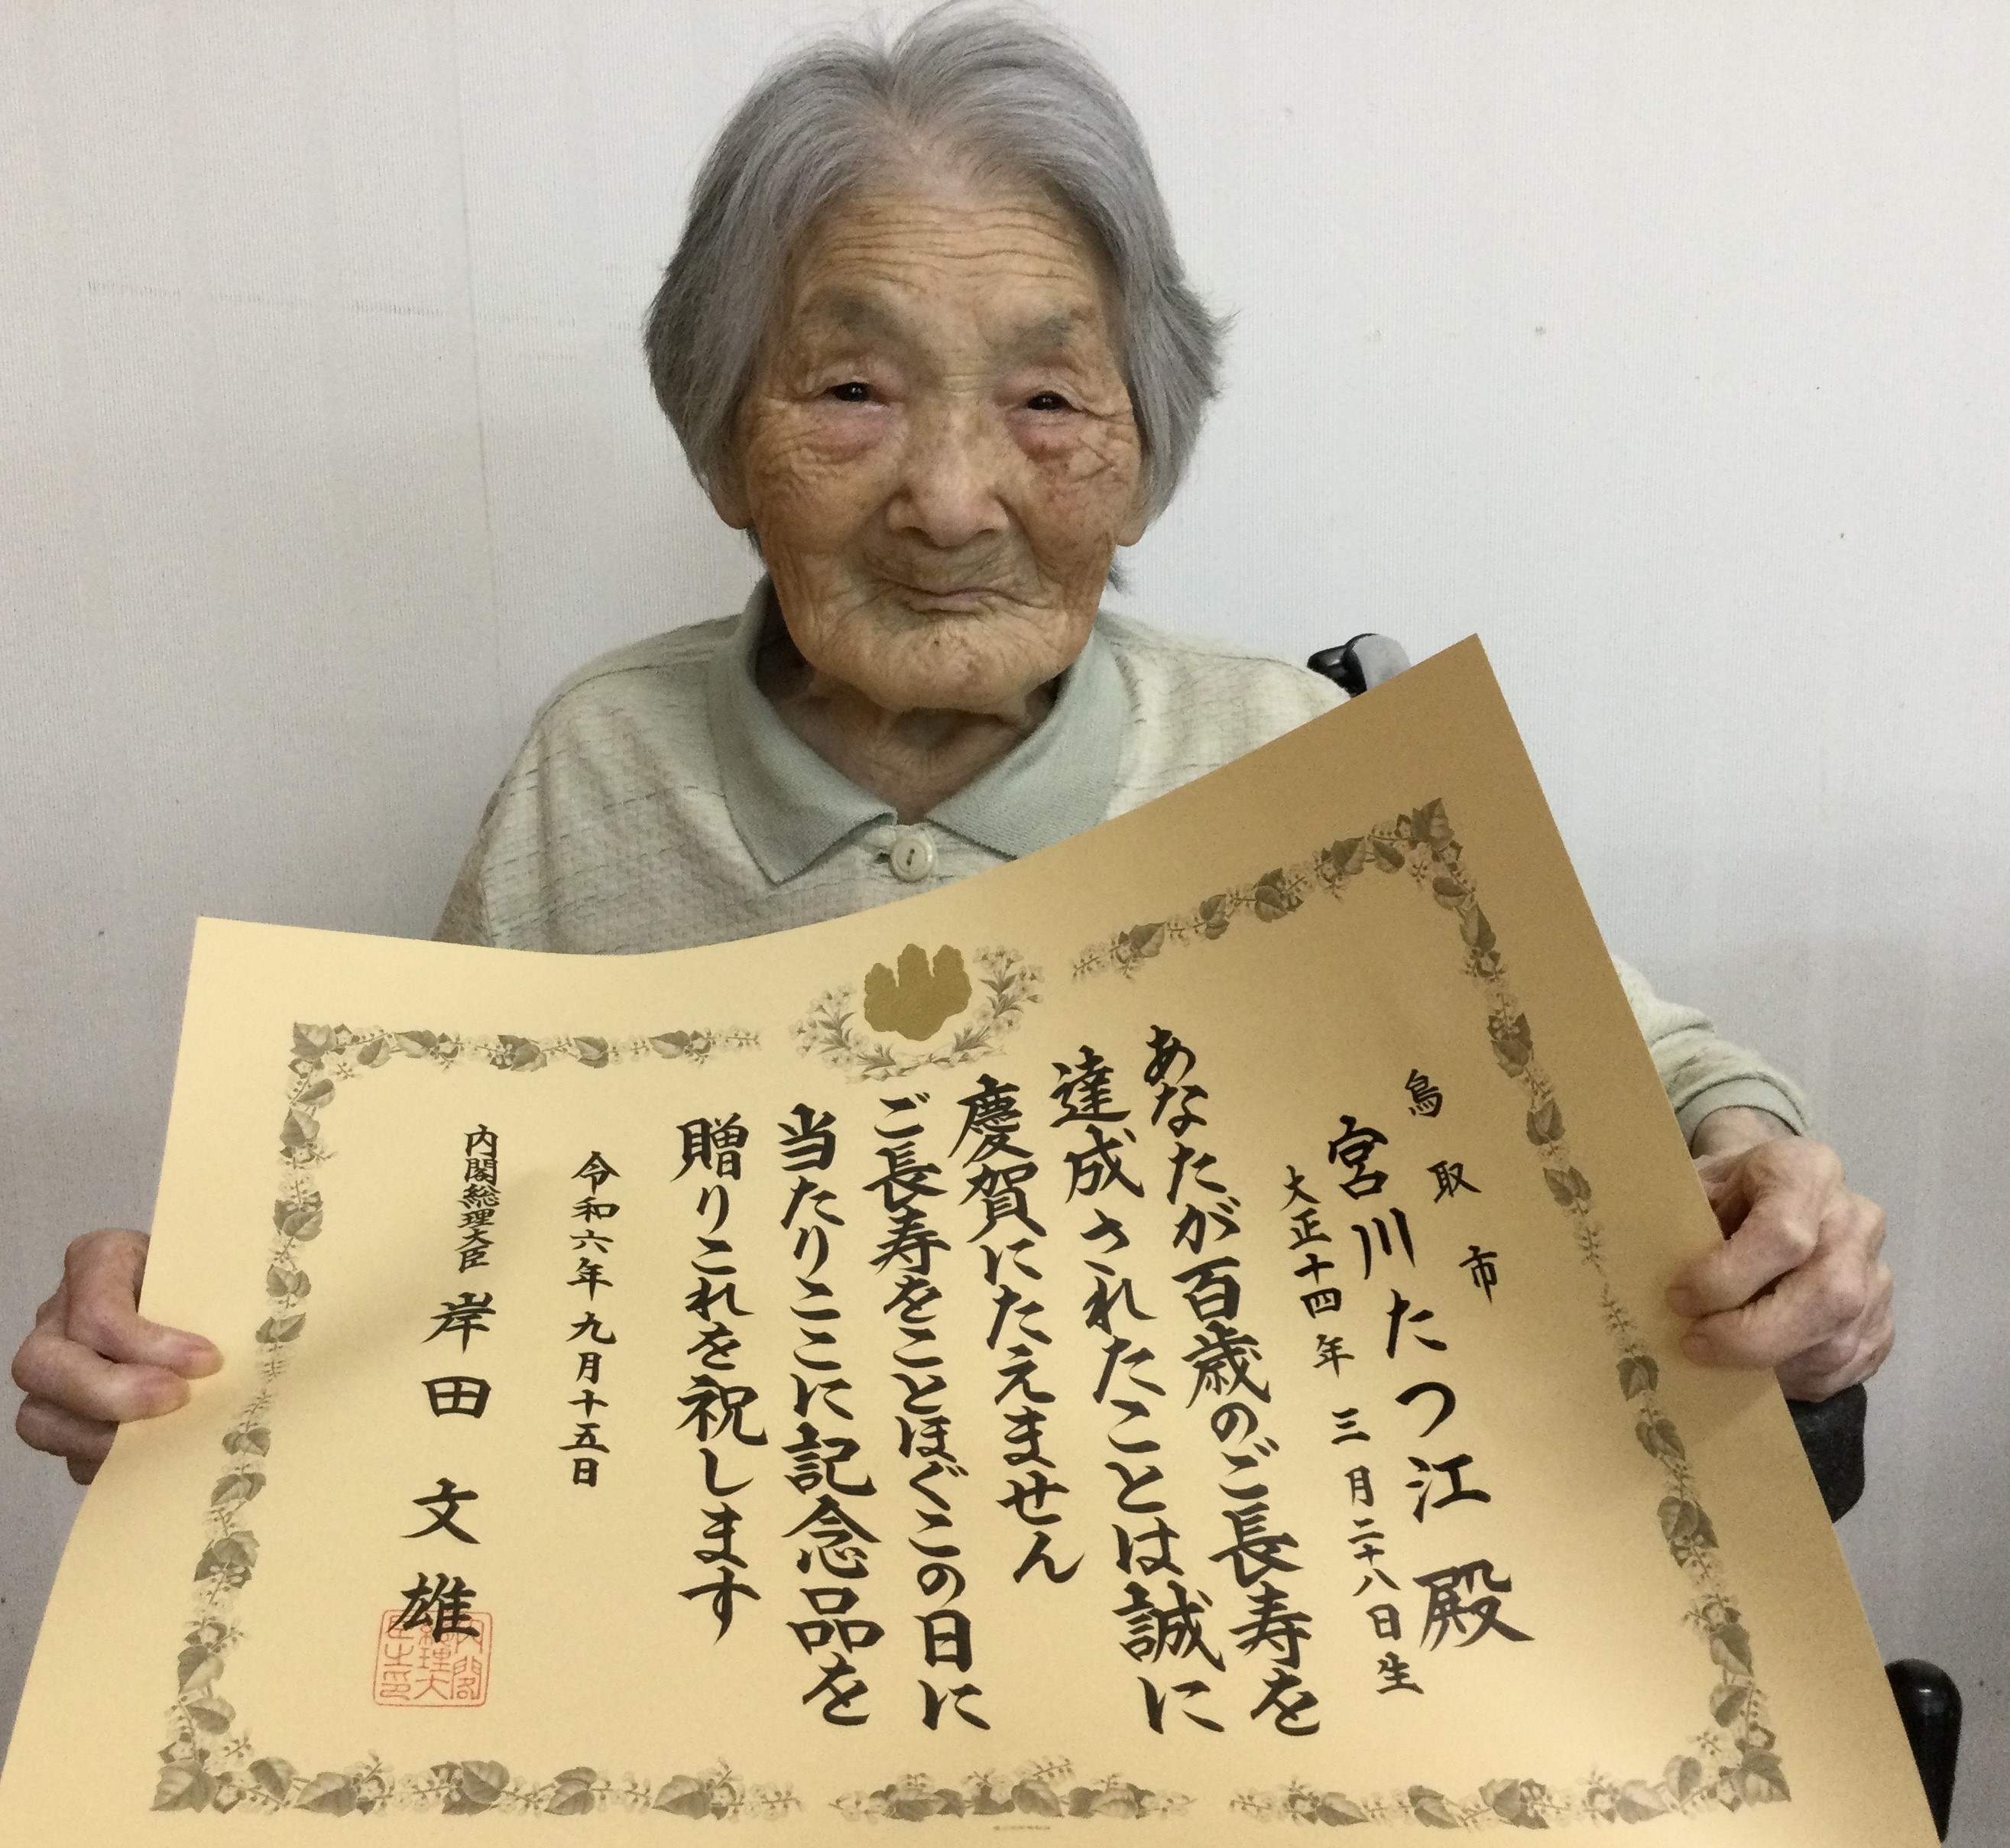 鳥取市
宮川たつ江殿
大正十四年三月二十八日生
あなたが百歳のご長寿を
達成されたことは誠に
慶賀にたえません
ご長寿をことほぐこの日に
当たりここに記念品を
贈りこれを祝します
令和六年九月十五日
内閣総理大臣 岸田文雄
内閣総理大臣之印